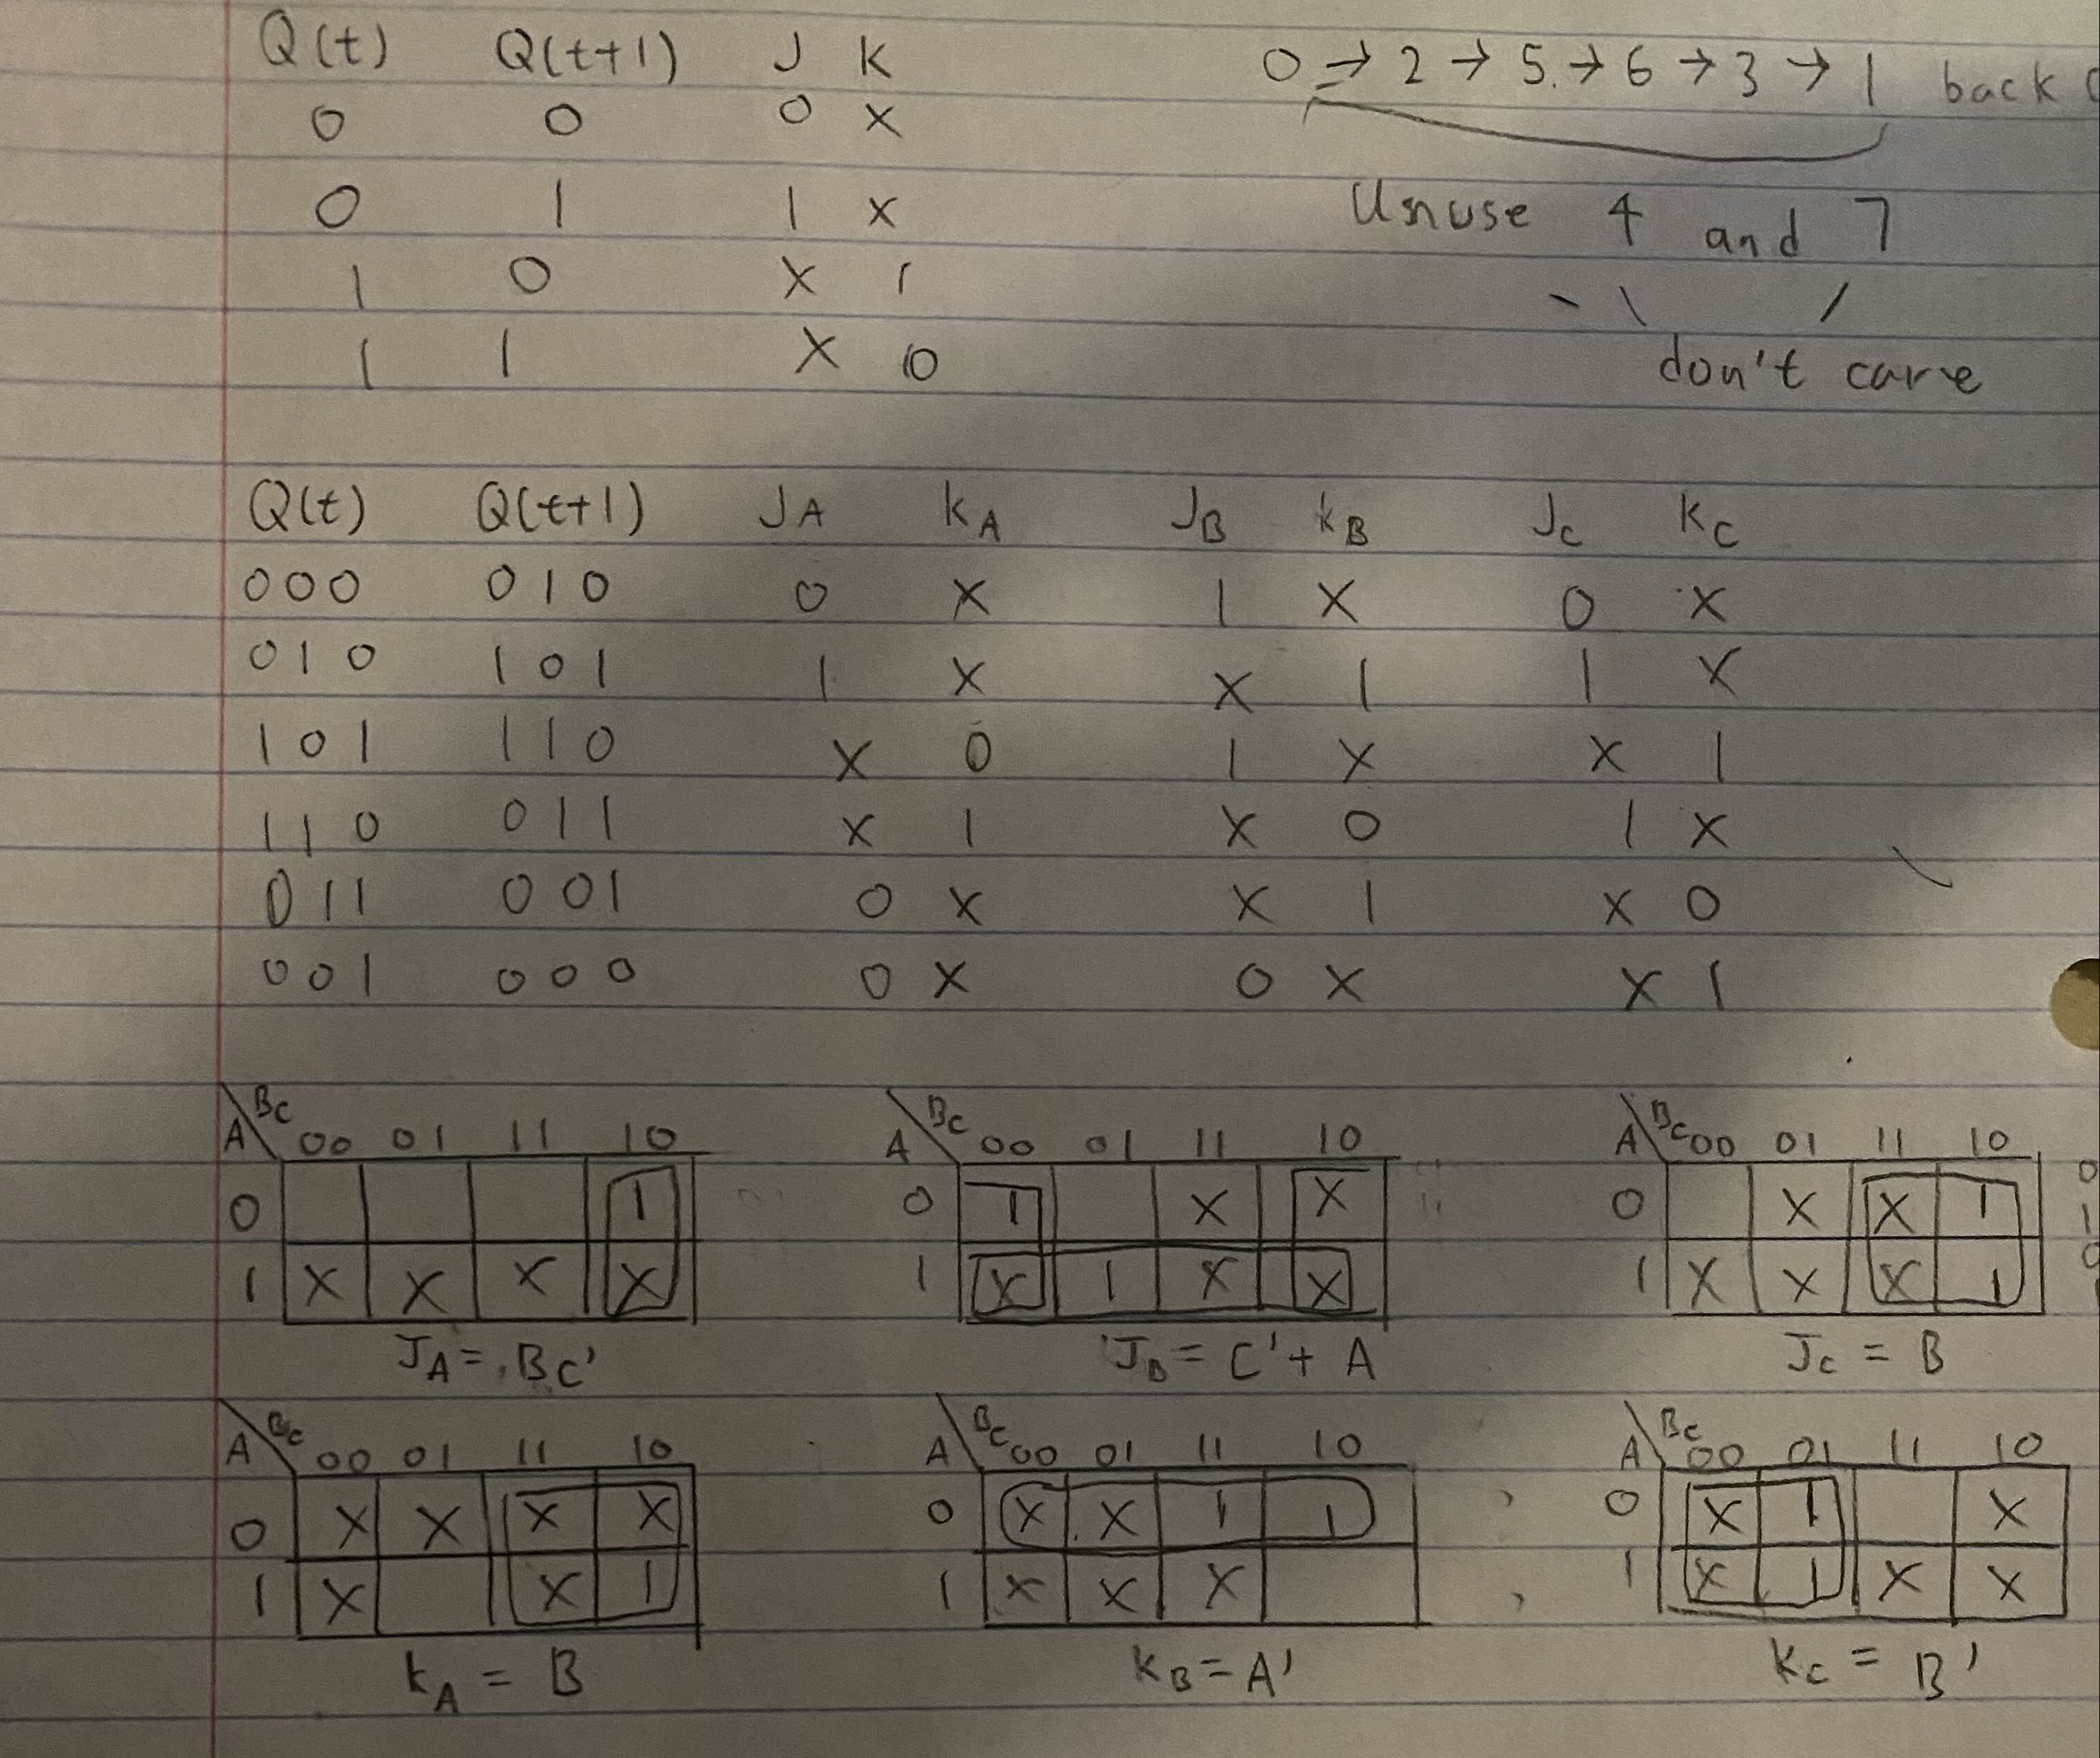 Q(t) Q(t+1) J K
0 → 2 → 5 → 6 → 3 → 1 back
0 0 0 X
0 1 1 X
Unuse 4 and 7
1 0 X 1
1 1 X 0
don't care
Q(t) Q(t+1) JA KA JB KB JC KC
000 010 0 X 1 X 0 X
010 101 1 X X 1 1 X
101 110 X 0 1 X X 1
110 011 X 1 X 0 1 X
011 001 0 X X 1 X 0
001 000 0 X 0 X X 1
A BC 00 01 11 10
0 1
1 X X X X
JA = BC'
A BC 00 01 11 10
0 1 X X
1 X 1 X X
JB = C' + A
A BC 00 01 11 10
0 X X 1
1 X X X 1
JC = B
A BC 00 01 11 10
0 X X X X
1 X X 1
KA = B
A BC 00 01 11 10
0 X X 1 1
1 X X X
KB = A'
A BC 00 01 11 10
0 X 1 X
1 X 1 X X
KC = B'